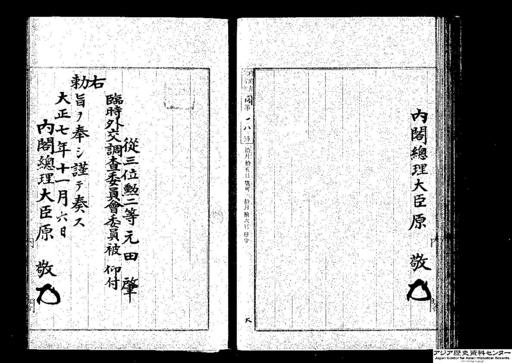 内閣總理大臣原 敬
從三位勲二等元田 肇
臨時外交調査委員會委員被 仰付
右勅
旨ヲ奉シ謹テ奏ス
大正七年十一月六日
内閣總理大臣原 敬
アジア歴史資料センター
Japan Center for Asian Historical Records